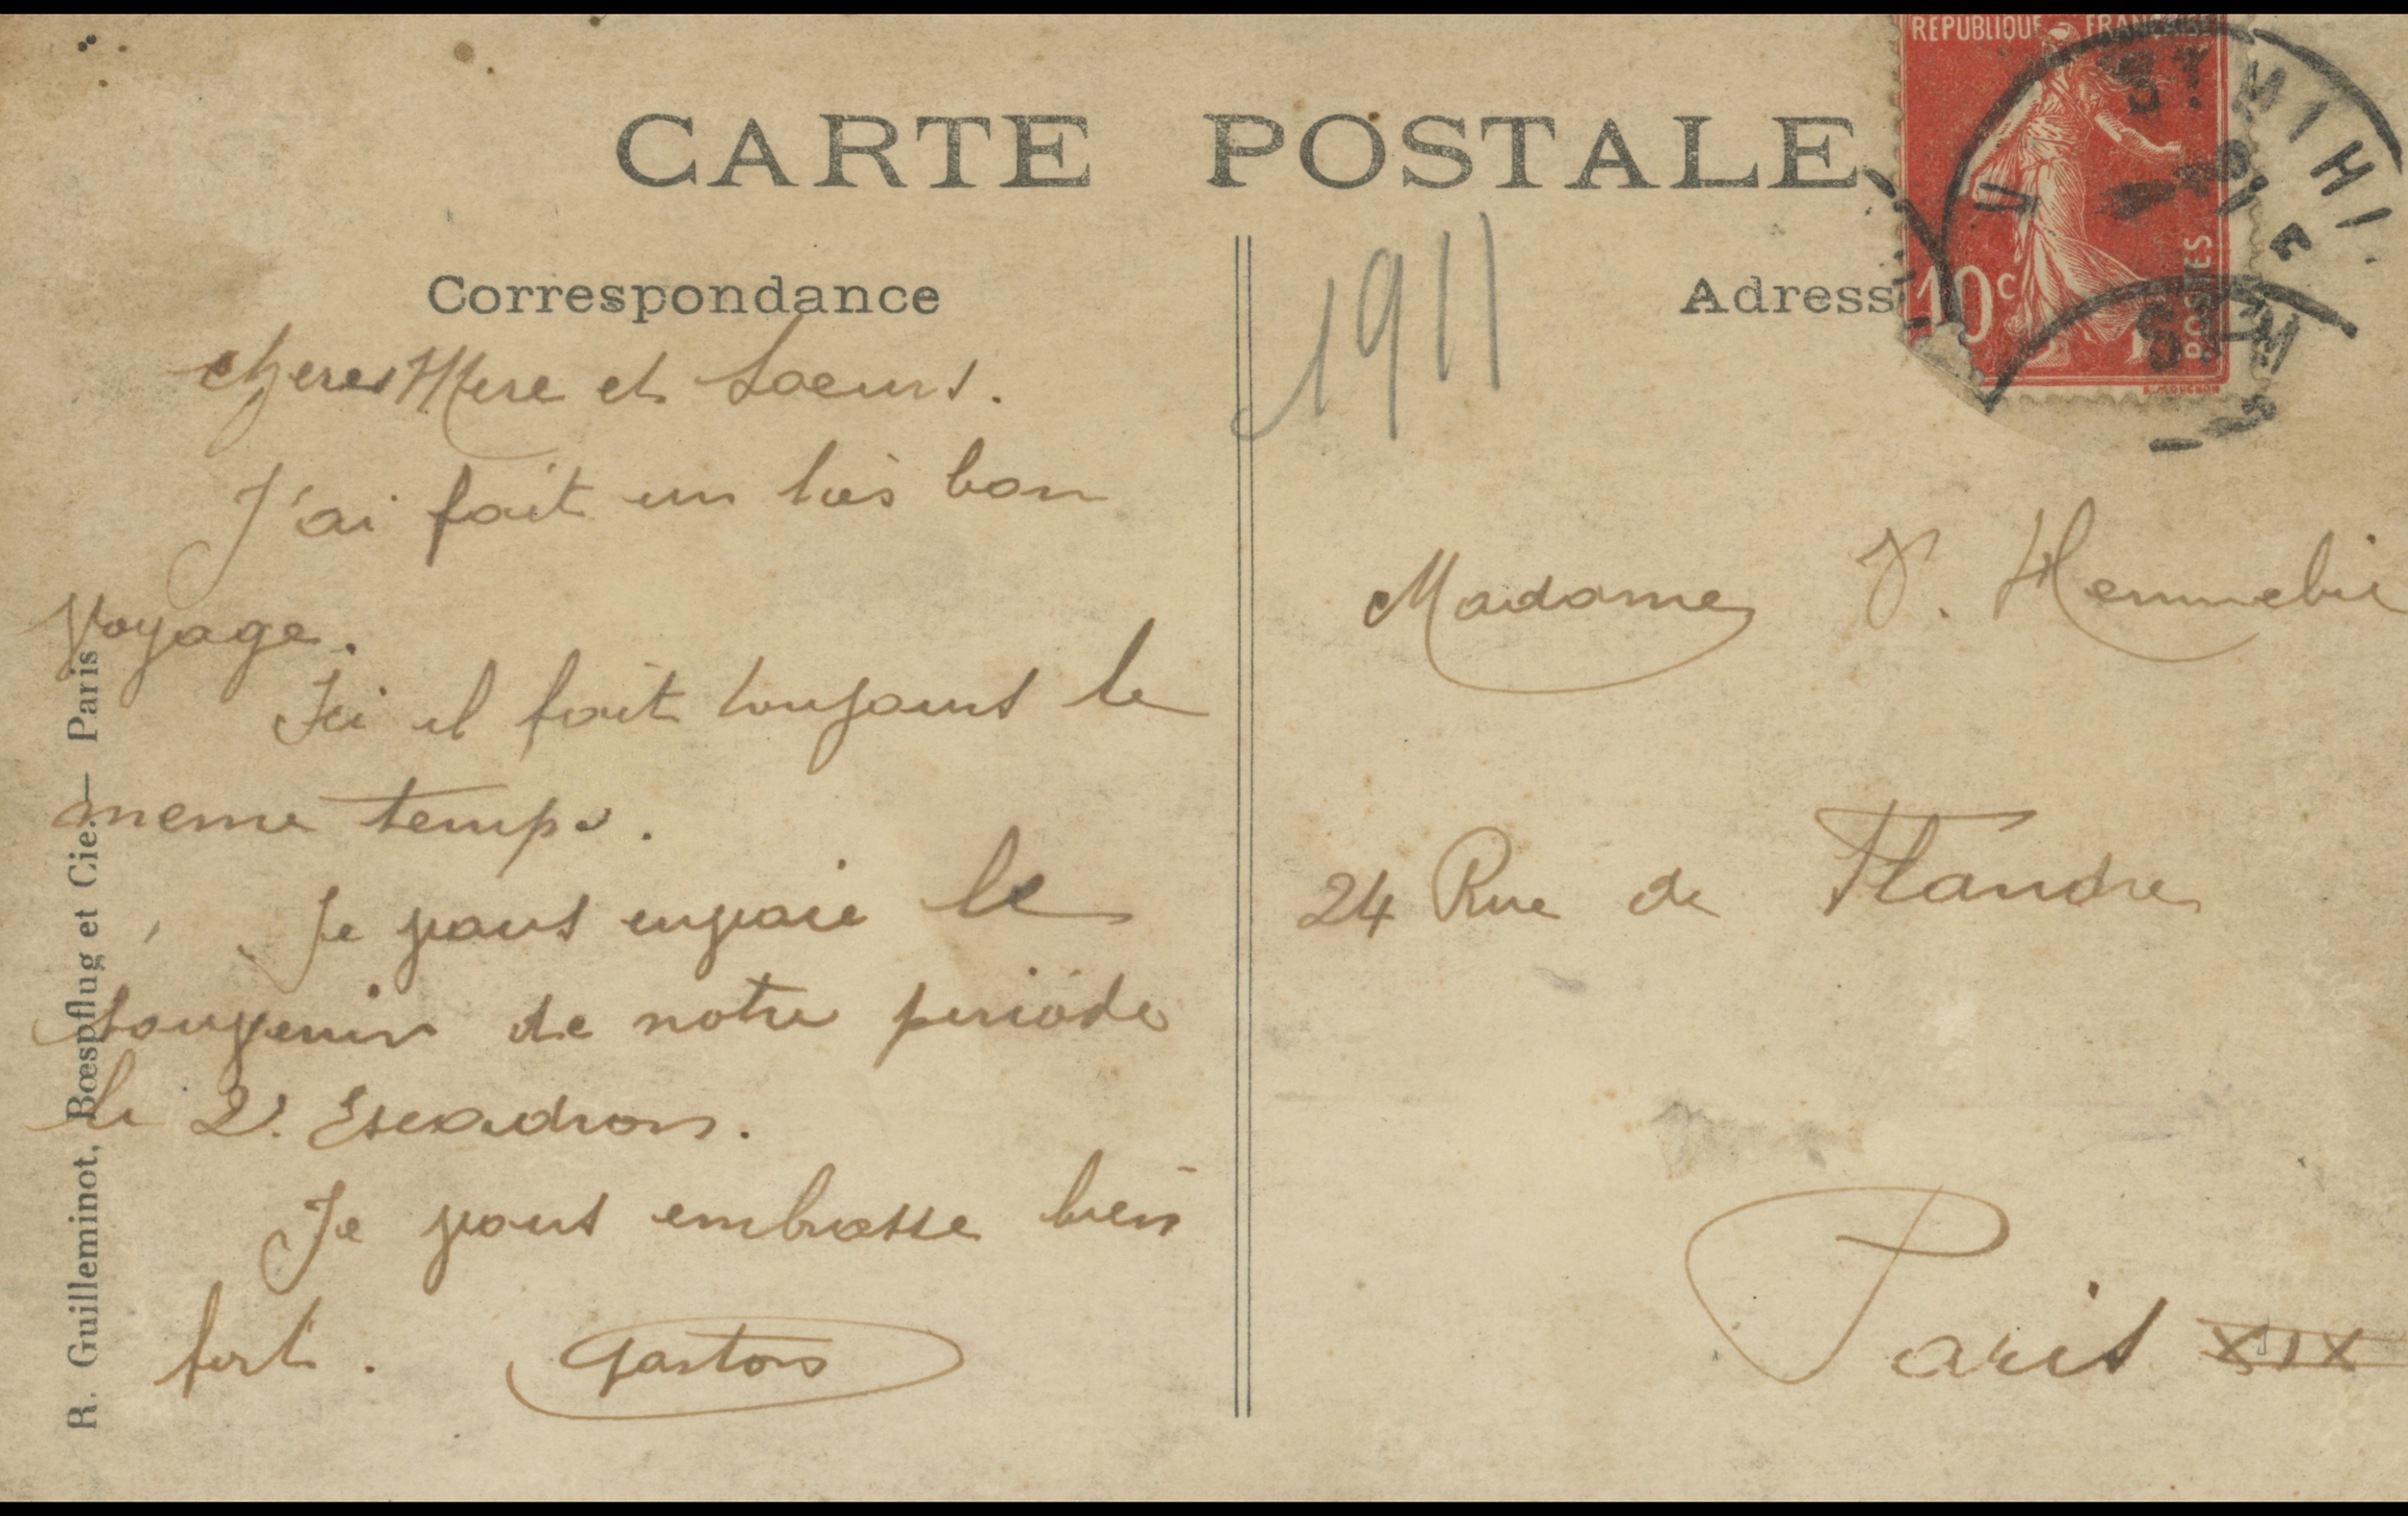 RÉPUBLIQUE FRANÇAISE
CARTE POSTALE
ST MIHI
10c
POSTES
Correspondance
Adress
1911
cheres Mere et Soeurs.
J'ai fait un très bon
Voyage.
Ici il fait toujours le
meme temps.
Je vous envoie le
souvenir de notre periode
le 2e. Escadron.
Je vous embrasse bien
fort. Gaston
Madame V. Hennebic
24 Rue de Flandre
Paris XIX
R. Guilleminot, Bœspflug et Cie. — Paris